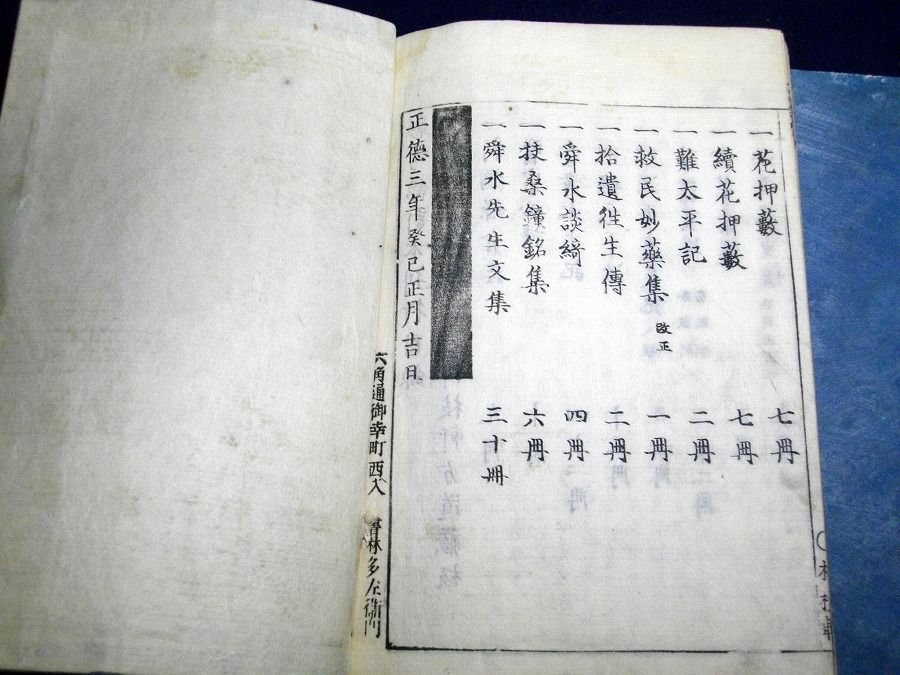 一花押藪 七冊
一續花押藪 七冊
一難太平記 二冊
一救民妙藥集 改正 一冊
一拾遺徃生傳 二冊
一舜水談綺 四冊
一扶桑鐘銘集 六冊
一舜水先生文集 三十冊
正德三年癸巳正月吉日
六角通御幸町西入 書林 多左衛門